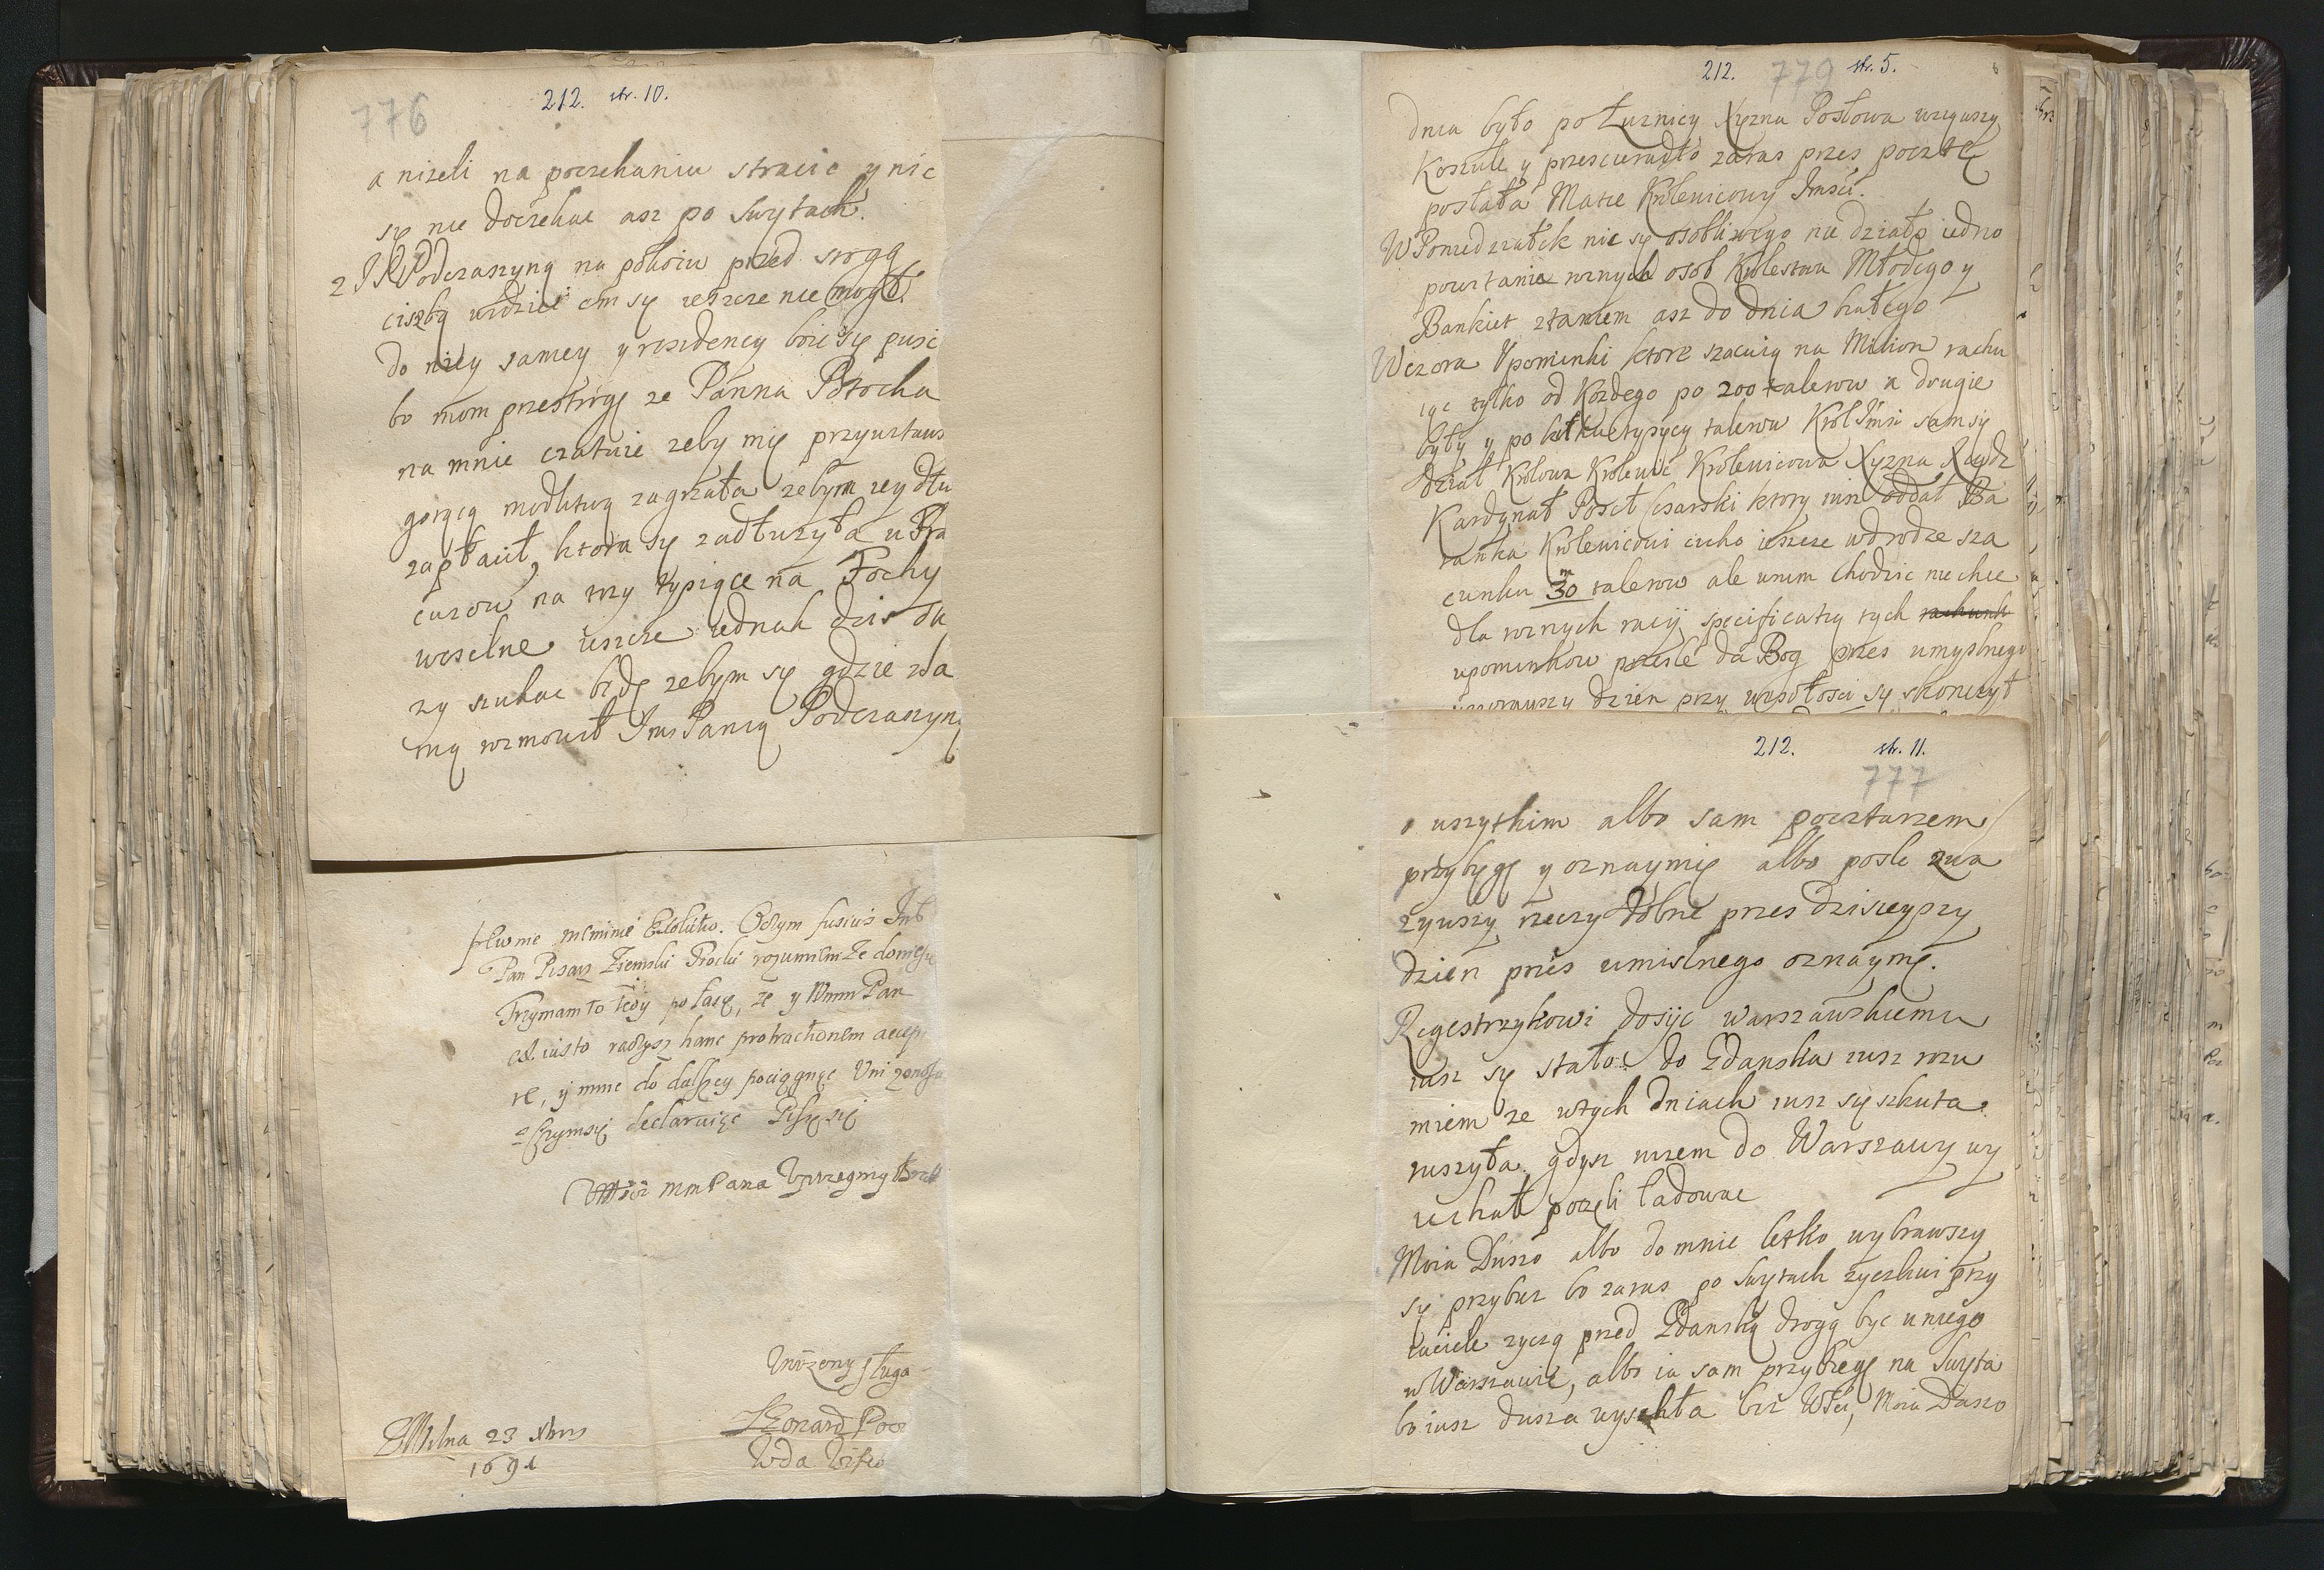 776
212. str. 10.
a nizeli na poczekaniu stracic y nic
sę nie doczekac asz po Swytach.
z J Podczaszyną na pokoiu przed srogą
ciszbą widziec em sę ieszcze nie mogł.
do niey samey y residency boie sę pusc
bo mom przestrogę ze Panna Potocka
na mnie czatuie zeby mię przywitaws
gorącą modlitwą zagrzała zebym iey dłu
zapłacił, ktora sę zadłuzyła u Kra
cuzow na trzy tysiące na Fochy
weselne ieszcze iednak dzis du
zy szukac będę zebym sę gdzie zda
ną rozmowił Ims Panią Podczaszyną
Pan Pisarz Ziemski Trocki rozumiem że doniesie
Trzymam to tedy po łasce, że y Wmm Pan
hanc protractionem accep
re, y mnie do dalszey pociągnąc Uni zonosu
declaruiąc Piszę się
mm Pana Uprzeymy Brat
Uniżony sługa
Leonard Poc
Wda
Wilna 23 Xbris
1691
212. 779 str. 5.
dnia było po Łuznicy Xyzna Posłowa wziąwszy
Koszule y przescieradło zaras przes pocztę
posłała Matce Krolewicowy Jmsci.
W Poniedziałek nic sę osobliwego nie działo iedno
powitanie roznych osob Krolestwa Młodego y
Bankiet z tancem asz do dnia białego
Wczora Upominki ktore szacuią na Milion rachu
iąc tylko od Kozdego po 200 talerow a drugie
były y po kilkutysęcy talerow Krol Jmsc sam sę
dział Krolowa Krolewic Krolewicowa Xyzna Radz
Kardynał Poseł Cesarski ktory iusz oddał Ba
ranka Krolewicowi cicho ieszcze w drodze sza
cunku 30 m talerow ale w nim chodzic nie chce
dla roznych racij specificatią tych rachunk
upominkow przesle da Bog przes umyslnego
wczorayszy dzien przy wesołosci sę skonczył
212. str. 11.
777
o wszytkim albo sam pocztarzem
przybęgę y oznaymię albo posle zwa
zywszy rzeczy dobrze przes dzisieyszy
dzien przes umislnego oznaymę.
Regestrzykowi dosyc warszawskiemu
iusz sę stało: do Gdanska iusz rozu
miem ze w tych dniach iusz sę szkuta
ruszyła. gdysz iuzem do Warszawy wy
iechał poczęli ładowac
Moia Duszo albo do mnie letko wybrawszy
sę przybuz bo zaras po Swytach zyczliwi przy
iaciele zyczą przed Gdanską drogą byc u niego
w Warszawie, albo ia sam przybiegę na Swyta
bo iusz dusza wyschła bez Wsci, Moia Duszo